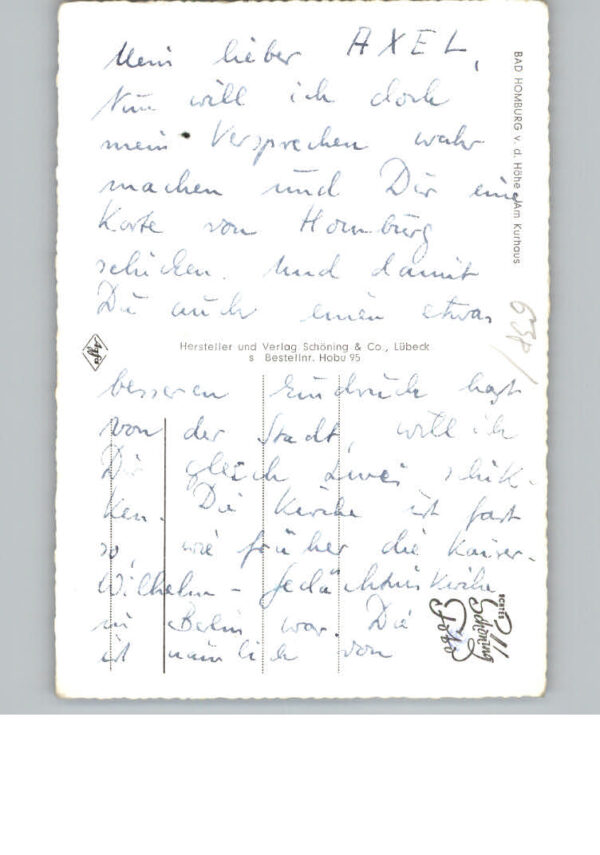 Mein lieber AXEL,
Nun will ich doch
mein Versprechen wahr
machen und Dir eine
Karte von Homburg
schicken. Und damit
Du auch einen etwas
besseren Eindruck hast
von der Stadt, will ich
Dir gleich zwei schik-
ken. Die Kirche ist fast
so, wie früher die Kaiser-
Wilhelm-Gedächtniskirche
in Berlin war. Die
ist nämlich von
BAD HOMBURG v. d. Höhe Am Kurhaus
Agfa
Hersteller und Verlag Schöning & Co., Lübeck
s Bestellnr. Hobu 95
ECHTES
Schöning
Foto